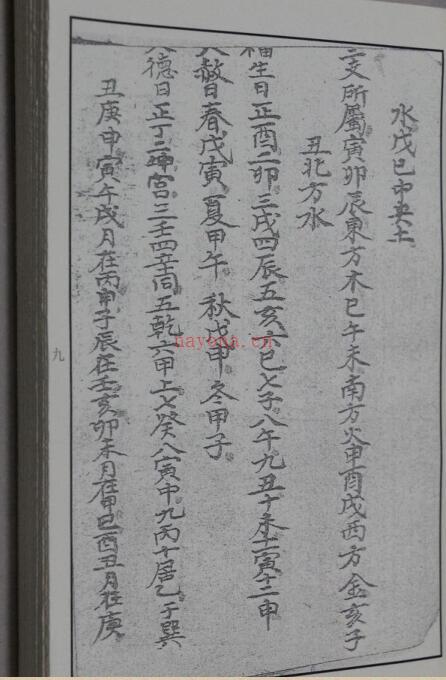 水戊己中央土
二支所屬寅卯辰東方木巳午未南方火申酉戌西方金亥子
丑北方水
福生日正酉二卯三戌四辰五亥六巳七子八午九丑十未十一寅十二申
天赦日春戊寅夏甲午 秋戊申冬甲子
天德日正丁二坤宮三壬四辛同五乾六甲上七癸八寅中九丙十居乙子巽
丑庚申寅午戌月在丙申子辰在壬亥卯未月在甲巳酉丑月在庚
九
nayona.cn